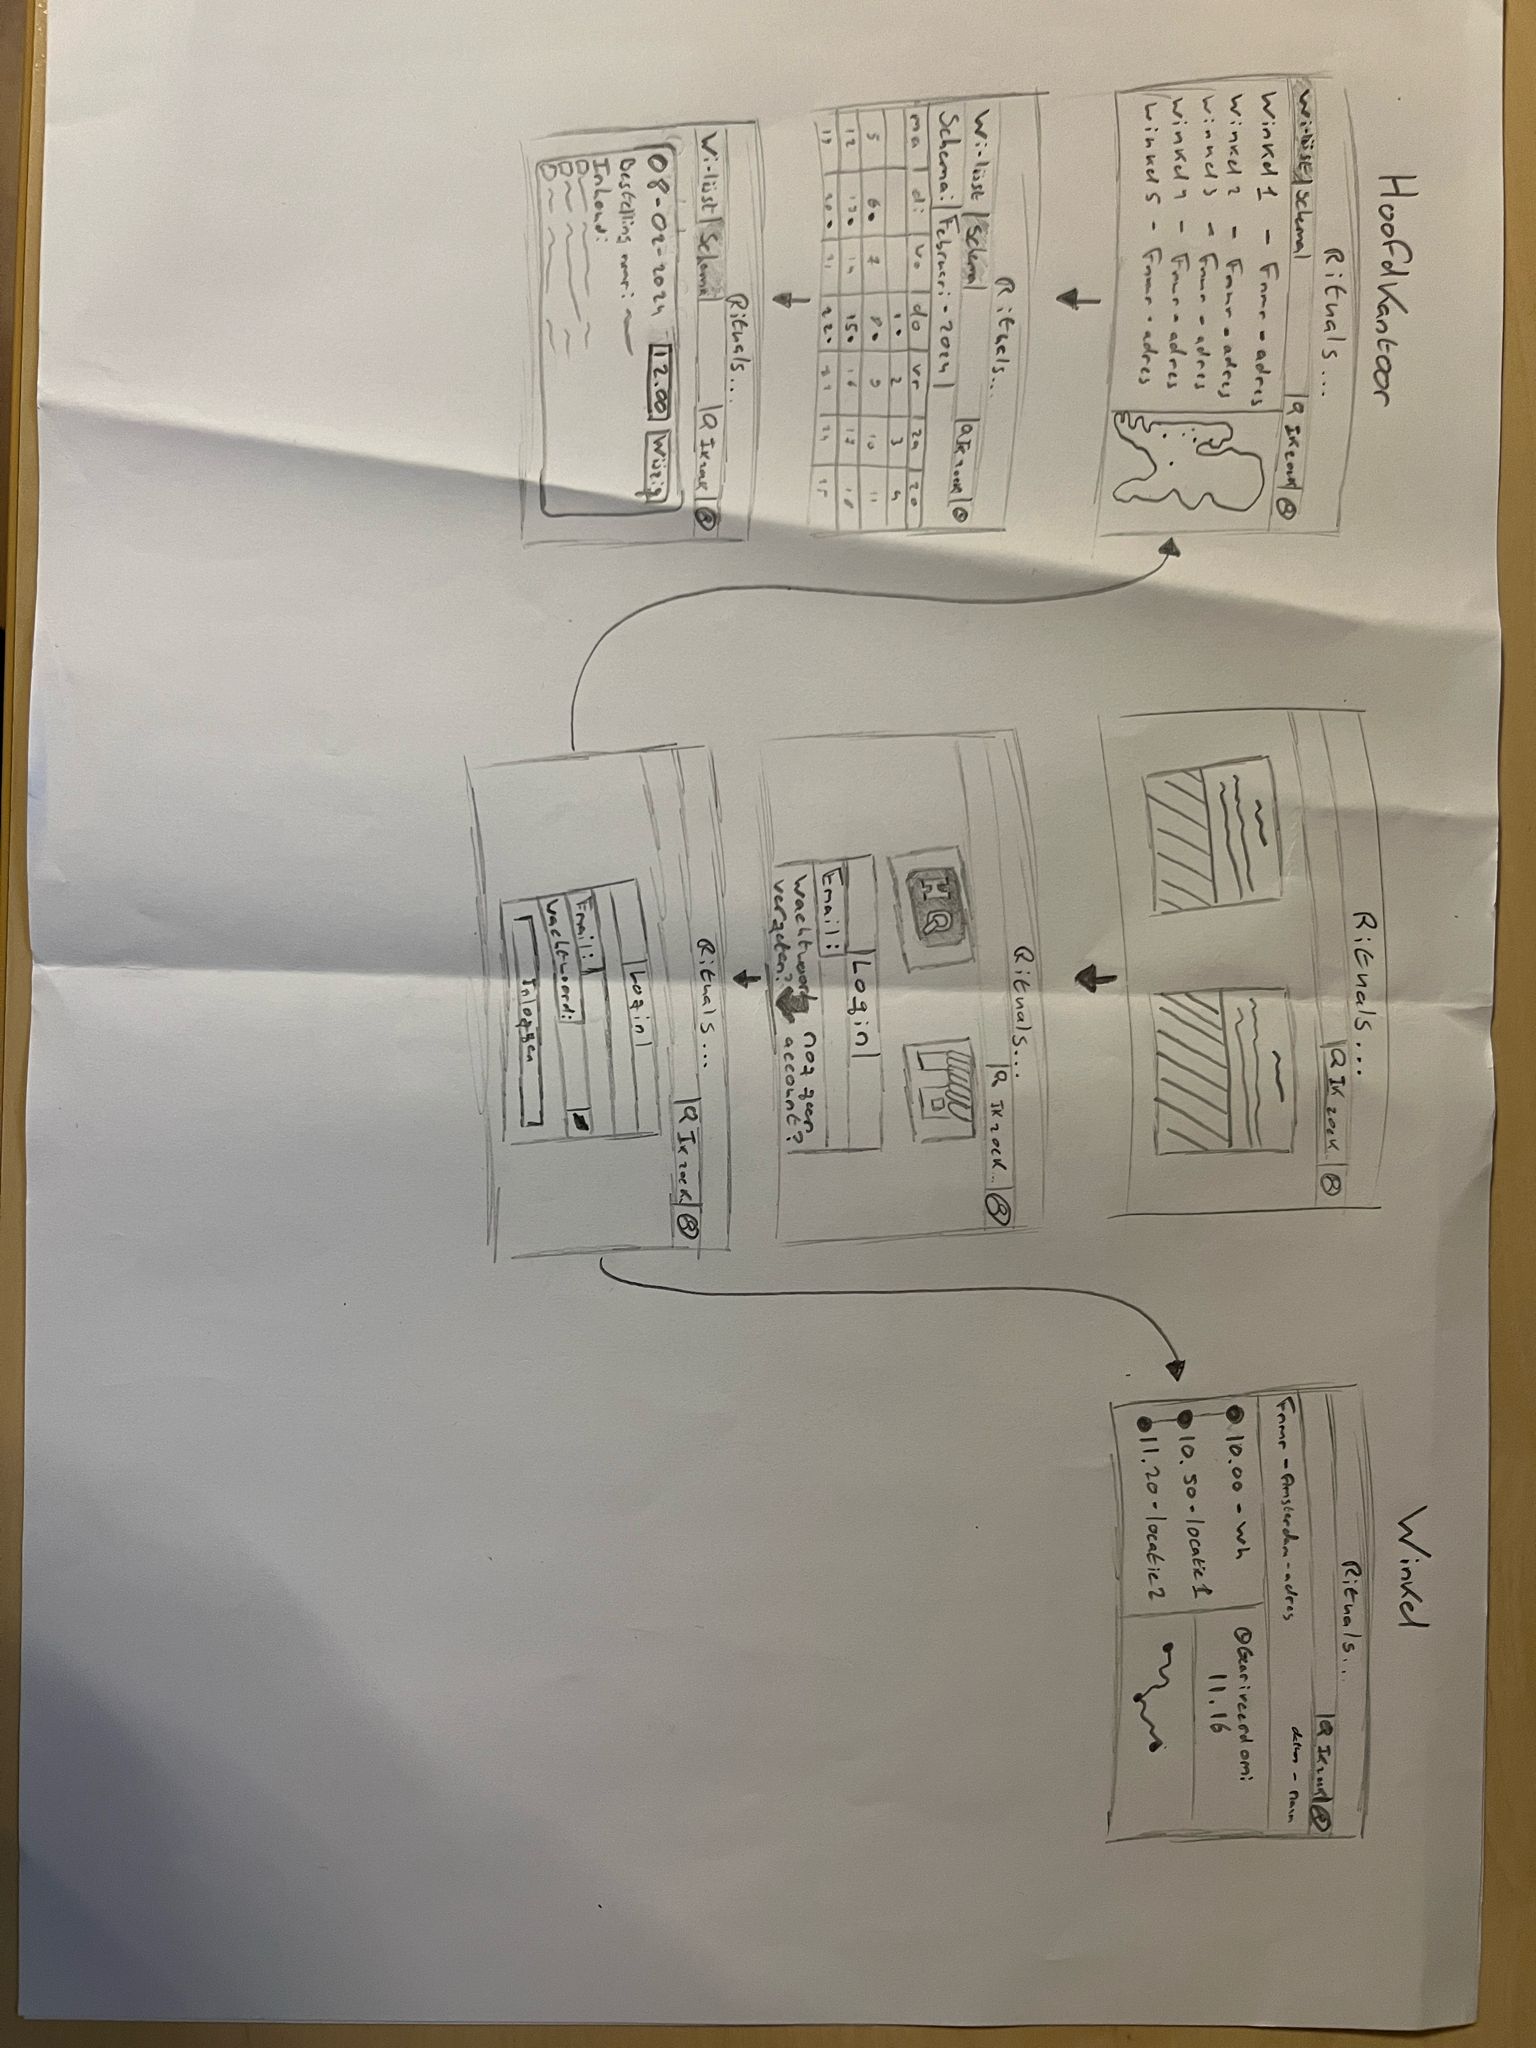 Hoofdkantoor
Rituals...
Wi-lijst | Schema
Ik zoek
Winkel 1 - Fnmr - adres
Winkel 2 - Fnmr - adres
Winkel 3 - Fnmr - adres
Winkel 4 - Fnmr - adres
Winkel 5 - Fnmr - adres
Rituals...
Wi-lijst | Schema
Ik zoek
Schema: | Februari - 2024
ma di wo do vr za zo
1 2 3 4
5 6 7 8 9 10 11
12 13 14 15 16 17 18
19 20 21 22 23 24 25
Rituals...
Wi-lijst | Schema
Ik zoek
08-02-2024 12.00 Wijzig
Bestelling nmr:
Inhoud:
Rituals...
Ik zoek...
Rituals...
Ik zoek...
HQ
Login
Email:
Wachtwoord vergeten?
nog geen account?
Rituals...
Ik zoek..
Login
Email:
Wachtwoord:
Inloggen
Winkel
Rituals...
Ik zoek
Fnmr - Amsterdam - adres
datum - naam
10.00 - Wh
10.50 - locatie 1
11.20 - locatie 2
Gearriveerd om:
11.16